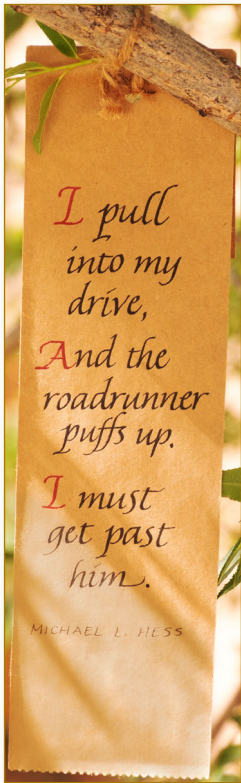 I pull
into my
drive,
And the
roadrunner
puffs up.
I must
get past
him.
MICHAEL L. HESS